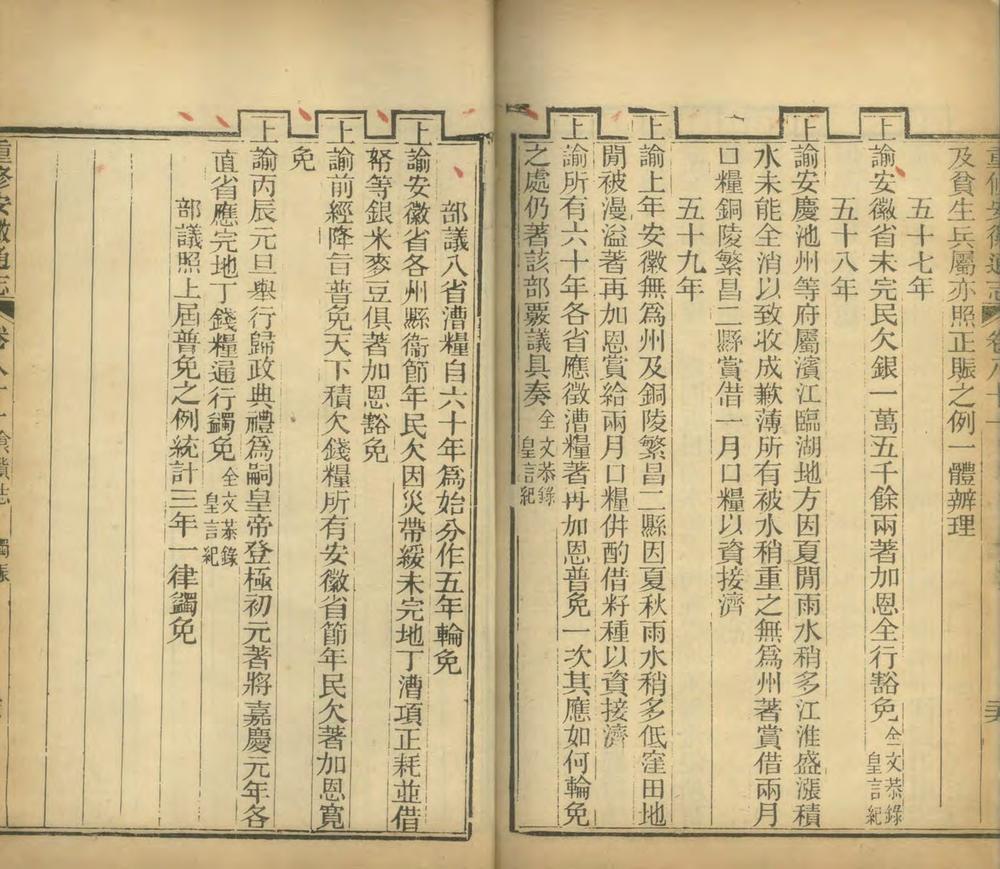 及貧生兵屬亦照正賑之例一體辦理
五十七年
上諭安徽省未完民欠銀一萬五千餘兩著加恩全行豁免全文恭錄皇言紀
五十八年
上諭安慶池州等府屬濱江臨湖地方因夏閒雨水稍多江淮盛漲積
水未能全消以致收成歉薄所有被水稍重之無爲州著賞借兩月
口糧銅陵繁昌二縣賞借一月口糧以資接濟
五十九年
上諭上年安徽無爲州及銅陵繁昌二縣因夏秋雨水稍多低窪田地
閒被漫溢著再加恩賞給兩月口糧倂酌借籽種以資接濟
上諭所有六十年各省應徵漕糧著再加恩普免一次其應如何輪免
之處仍著該部覈議具奏全文恭錄皇言紀
部議八省漕糧自六十年爲始分作五年輪免
上諭安徽省各州縣衞節年民欠因災帶緩未完地丁漕項正耗並借
帑等銀米麥豆俱著加恩豁免
上諭前經降旨普免天下積欠錢糧所有安徽省節年民欠著加恩寬
免
上諭丙辰元旦舉行歸政典禮爲嗣皇帝登極初元著將嘉慶元年各
直省應完地丁錢糧通行蠲免全文恭錄皇言紀
部議照上屆普免之例統計三年一律蠲免
重修安徽通志